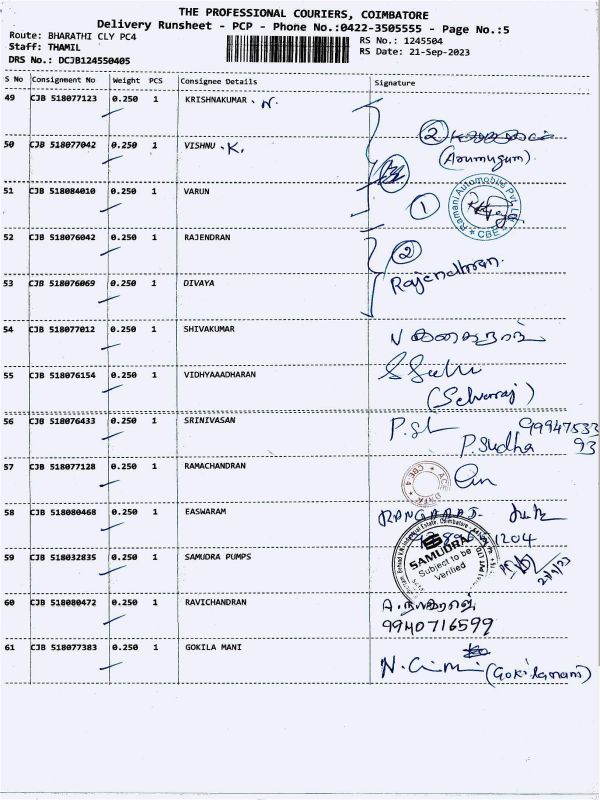 THE PROFESSIONAL COURIERS, COIMBATORE
Delivery Runsheet - PCP - Phone No.:0422-3505555 - Page No.:5
Route: BHARATHI CLY PC4 RS No.: 1245504
Staff: THAMIL RS Date: 21-Sep-2023
DRS No.: DCJB124550405
S No Consignment No Weight PCS Consignee Details Signature
49 CJB 518077123 0.250 1 KRISHNAKUMAR . N.
2
(Arumugum)
50 CJB 518077042 0.250 1 VISHNU . K.
51 CJB 518084010 0.250 1 VARUN
1
Ramani Automobile Pvt. Ltd
CBE
52 CJB 518076042 0.250 1 RAJENDRAN
2
Rajendhran.
53 CJB 518076069 0.250 1 DIVAYA
54 CJB 518077012 0.250 1 SHIVAKUMAR
55 CJB 518076154 0.250 1 VIDHYAAADHARAN
(Selvaraj)
56 CJB 518076433 0.250 1 SRINIVASAN
99947533
P. Sudha 93
57 CJB 518077128 0.250 1 RAMACHANDRAN
58 CJB 518080468 0.250 1 EASWARAM
1204
59 CJB 518032835 0.250 1 SAMUDRA PUMPS
SAMUDRA
Subject to be
Verified
60 CJB 518080472 0.250 1 RAVICHANDRAN
9940716599
61 CJB 518077383 0.250 1 GOKILA MANI
(Gokilamani)